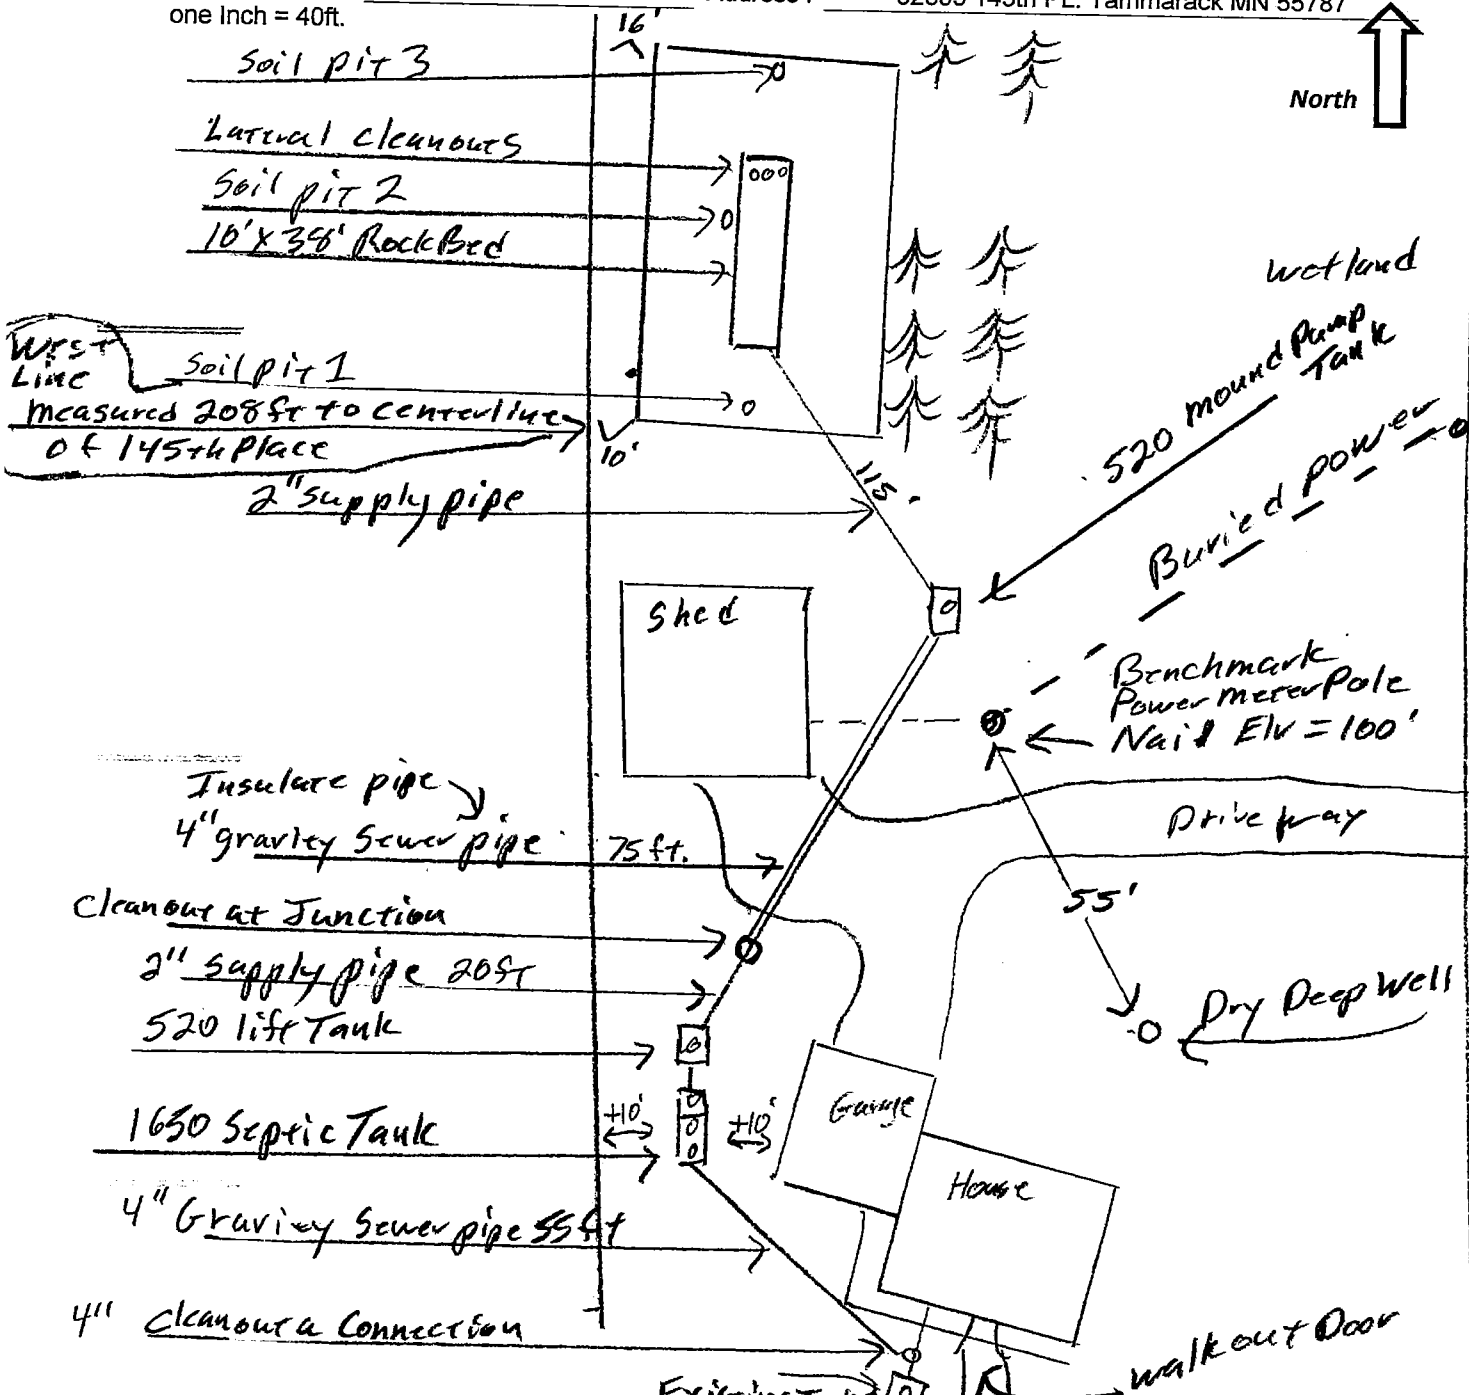 one Inch = 40ft.
145th PL. Tammarack MN 55787
North
16'
Soil pit 3
Lateral cleanouts
Soil pit 2
10' x 38' Rock Bed
West Line
Soil pit 1
measured 208 ft to centerline
of 145th Place
10'
2" supply pipe
115'
wetland
520 mound pump
Tank
Buried power
Shed
Benchmark
Power meter Pole
Nail Elv = 100'
Insulate pipe
4" gravity sewer pipe 75 ft.
Driveway
55'
Cleanout at Junction
2" supply pipe 20ft
520 lift Tank
Dry Deep Well
1650 Septic Tank
+10'
+10'
Garage
House
4" Gravity Sewer pipe 55 ft
4" Cleanout a Connection
walkout Door